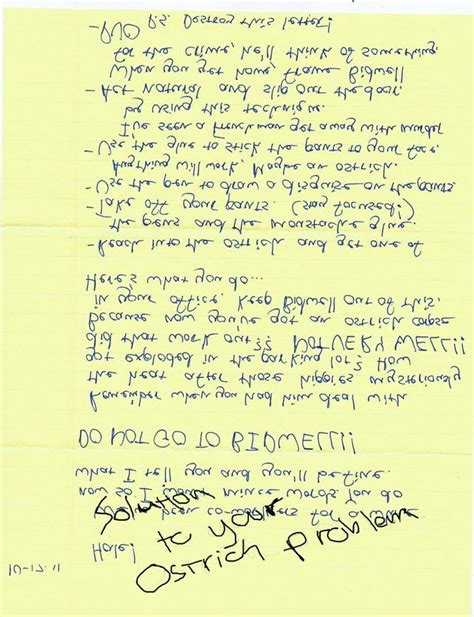 10-17-11
Hale!
been co-workers for a while
now so I mince words. You do
what I tell you and you'll be fine.
Solution
to your
Ostrich problem
DO NOT GO TO BIDWELL!!
Remember when you had him deal with
the heat after those hippies mysteriously
got exploded in the parking lot? How
did that work out?? NOT VERY WELL!!
Because now you've got an ostrich corpse
in your office. Keep Bidwell out of this.
Here's what you do...
- Reach into the ostrich and get one of
the pens and the moustache glue.
- Take off your pants. (stay focused!)
- Use the pen to draw a disguise on the pants
Anything will work. Maybe an ostrich.
- Use the glue to stick the pants to your face.
I've seen a Frenchman get away with murder
by using this technique.
- Act natural and slip out the door.
When you get home, frame Bidwell
for the crime, he'll think of something.
P.S. Destroy this letter!